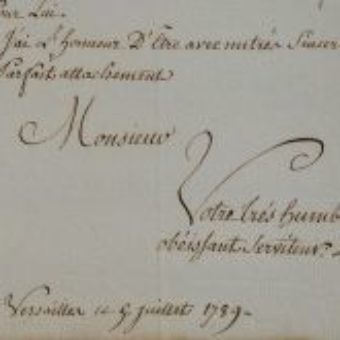 Pour Lui.
J'ai L'honneur D'Être avec un trés Sincer
Parfait attachement
Monsieur
Votre trés humb
obéissant Serviteur.
Versailles ce 9 juillet 1789.